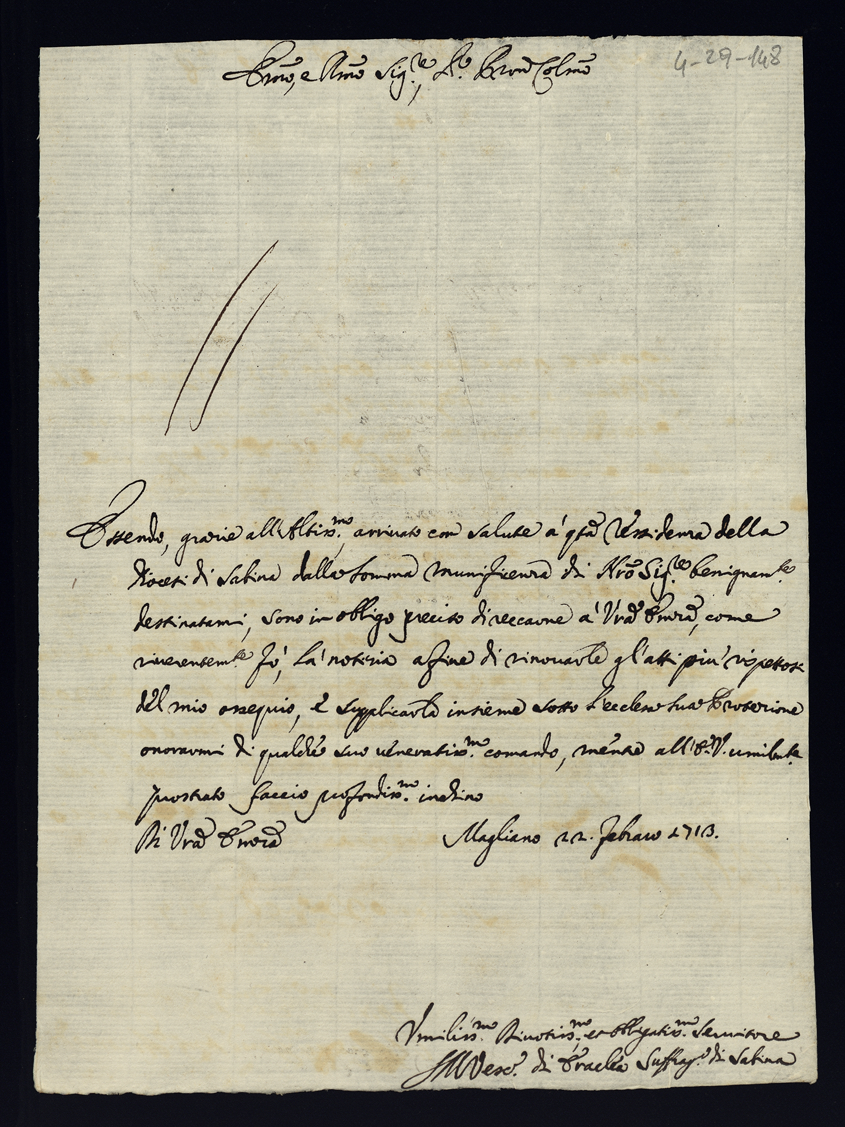 4-29-148
Emo, e Rmo Sig.re, Pro͂n Colmo
Essendo, grazie all'Altiss.mo, arrivato con salute à q͂sta Residenza della
diocesi di Sabina dalla somma munificenza di Nro͂ Sig.re benignam.te
destinatami, sono in obligo preciso di reccarne à Vra͂ Em͂za, come
riverentem.te fò, la notizia affine di rinovarle gl'atti più rispettosi
del mio ossequio, e supplicarla insieme sotto l'eccelsa sua Protezione
onorarmi di qualche suo veneratiss.mo comando, mentre all'E.V. umilmte
prostrato faccio profondiss.mo inchino
Di Vra͂ Em͂za Magliano 22. Febraro 1713.
Umiliss.mo Divotiss.mo et obligatiss.mo Servitore
Vesc.o di Eraclea Suffrag.o di Sabina